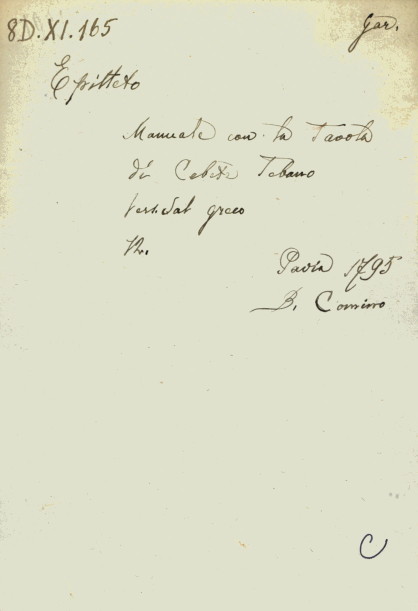 8D.XI.165
Gar.
Epitteto
Manuale con la Tavola
di Cebete Tebano
vers. dal greco
12.
Pavia 1795
B. Comino
C